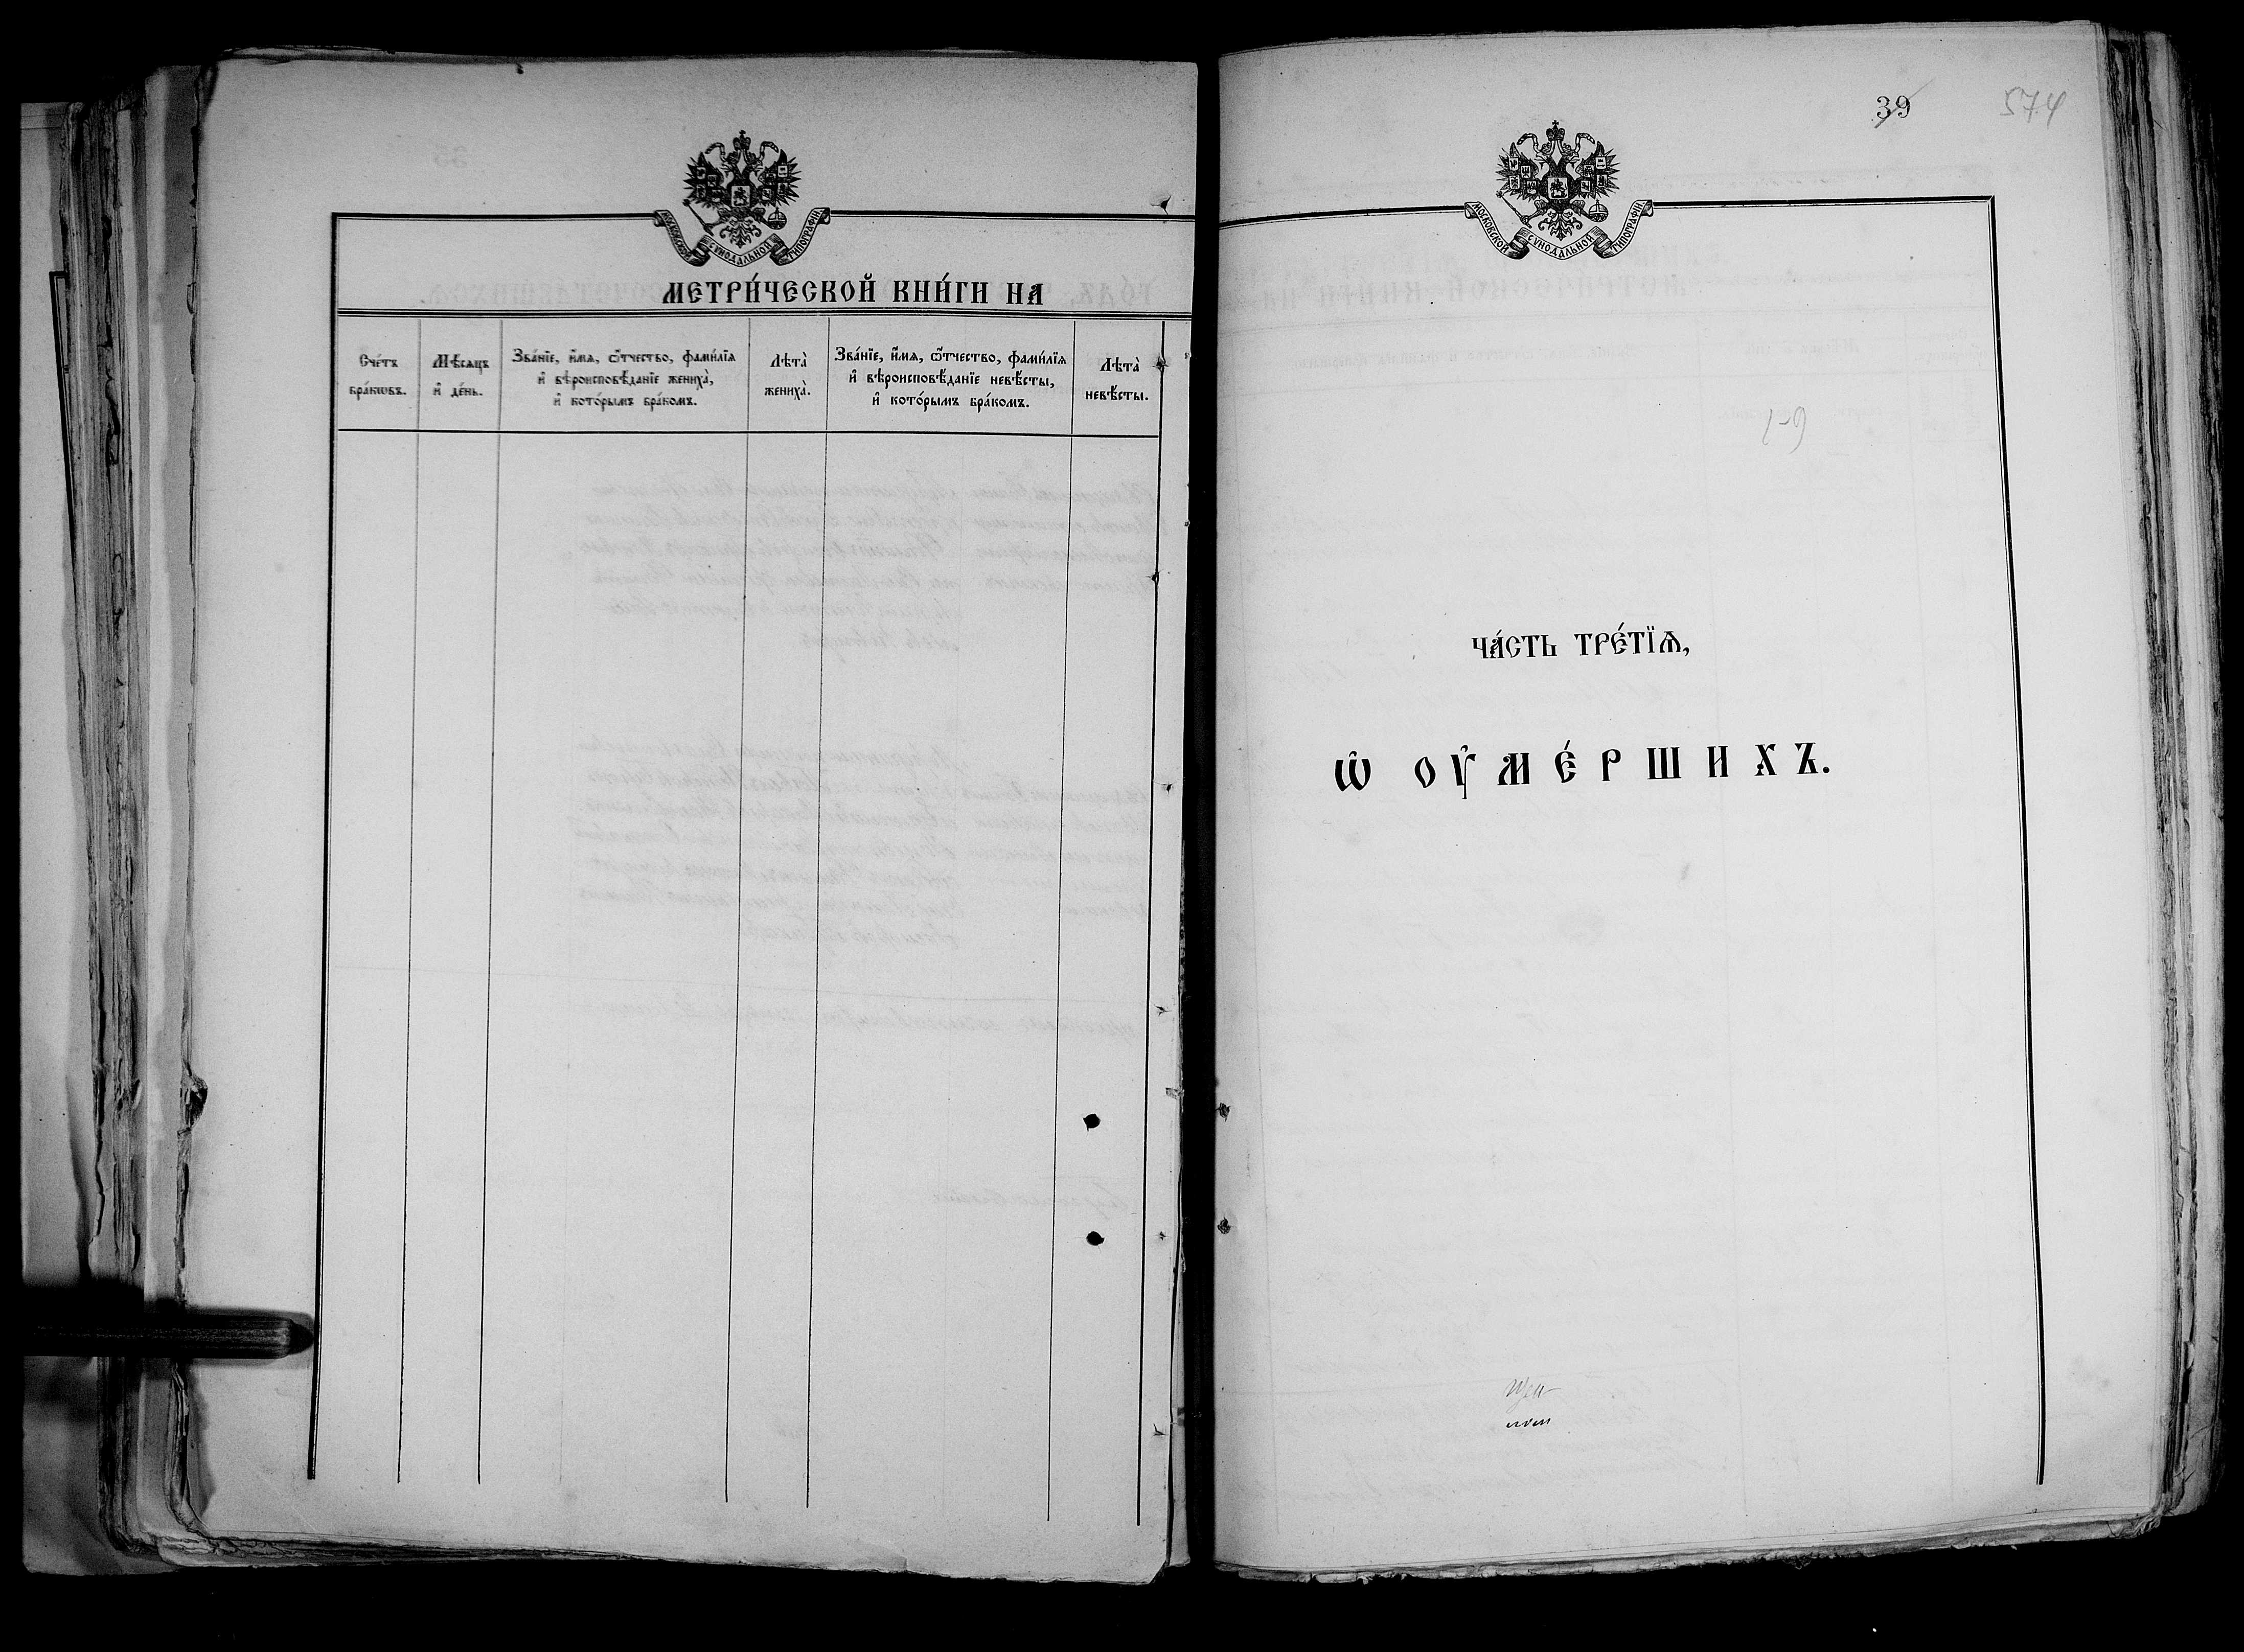 МОСКОВСКОЙ СѴНОДАЛЬНОЙ ТИПОГРАФІИ
МЕТРИ́ЧЕСКОЙ КНИ́ГИ НА
Сче́тъ
бра́кѡвъ.
Мѣ́сѧцъ
и҆ де́нь.
Зва́нїе, и҆́мѧ, ѻ҆́тчество, фами́лїѧ
и҆ вѣроисповѣ́данїе жениха̀,
и҆ кото́рымъ бра́комъ.
Лѣта̀
жениха̀.
Зва́нїе, и҆́мѧ, ѻ҆́тчество, фами́лїѧ
и҆ вѣроисповѣ́данїе невѣ́сты,
и҆ кото́рымъ бра́комъ.
Лѣта̀
невѣ́сты.
39 574
МОСКОВСКОЙ СѴНОДАЛЬНОЙ ТИПОГРАФІИ
ЧА́СТЬ ТРЕ́ТЇѦ,
Ѡ҆ ОУ҆МЕ́РШИХЪ.